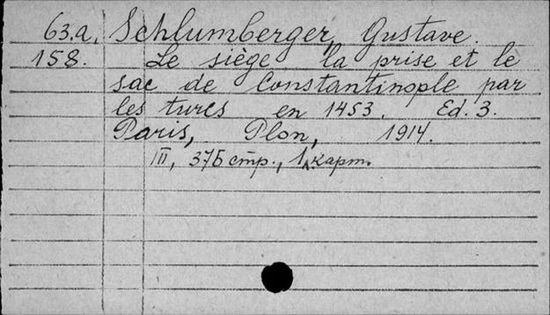 63.a. Schlumberger, Gustave.
158. Le siège la prise et le
sac de Constantinople par
les turcs en 1453. Ed. 3.
Paris, Plon, 1914.
III, 375 стр., 1 карт.